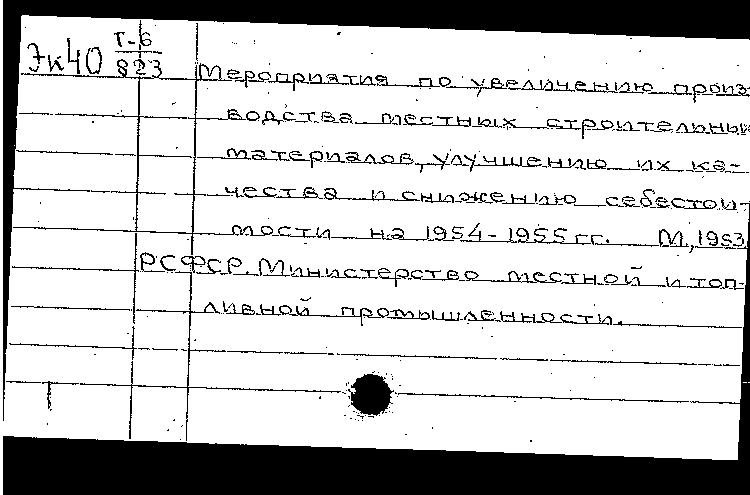 Эк40 Т-6
823
Мероприятия по увеличению произ
водства местных строительны
материалов, улучшению их ка-
чества и снижению себестои-
мости на 1954-1955 гг. М., 1953.
РСФСР. Министерство местной и топ-
ливной промышленности.